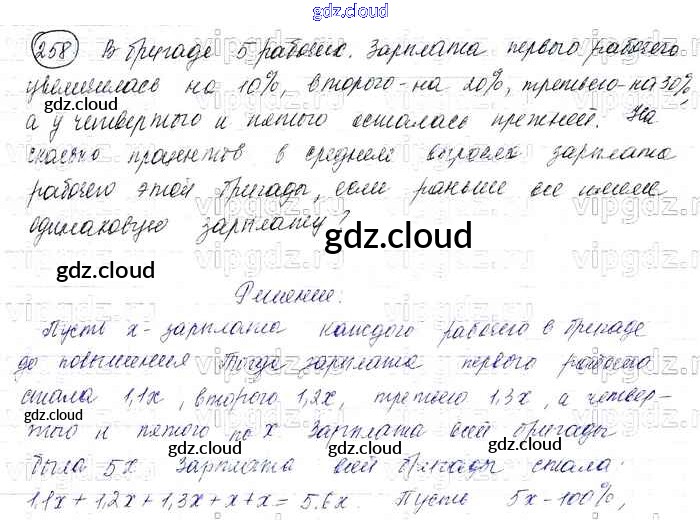 gdz.cloud
258. В бригаде 5 рабочих. Зарплата первого рабочего
увеличилась на 10%, второго - на 20%, третьего - на 30%,
gdz.cloud gdz.cloud
а у четвертого и пятого осталась прежней. На
сколько процентов в среднем выросла зарплата
рабочего этой бригады, если раньше все имели
одинаковую зарплату?
gdz.cloud
gdz.cloud
Решение:
Пусть x - зарплата каждого рабочего в бригаде
до повышения Тогда зарплата первого рабочего
стала 1,1x, второго 1,2x, третьего 1.3x, а четвер-
gdz.cloud gdz.cloud
того и пятого по x Зарплата всей бригады
была 5x Зарплата всей бригады стала:
gdz.cloud gdz.cloud
1,1x + 1,2x + 1,3x + x + x = 5.6x. Пусть 5x - 100%,